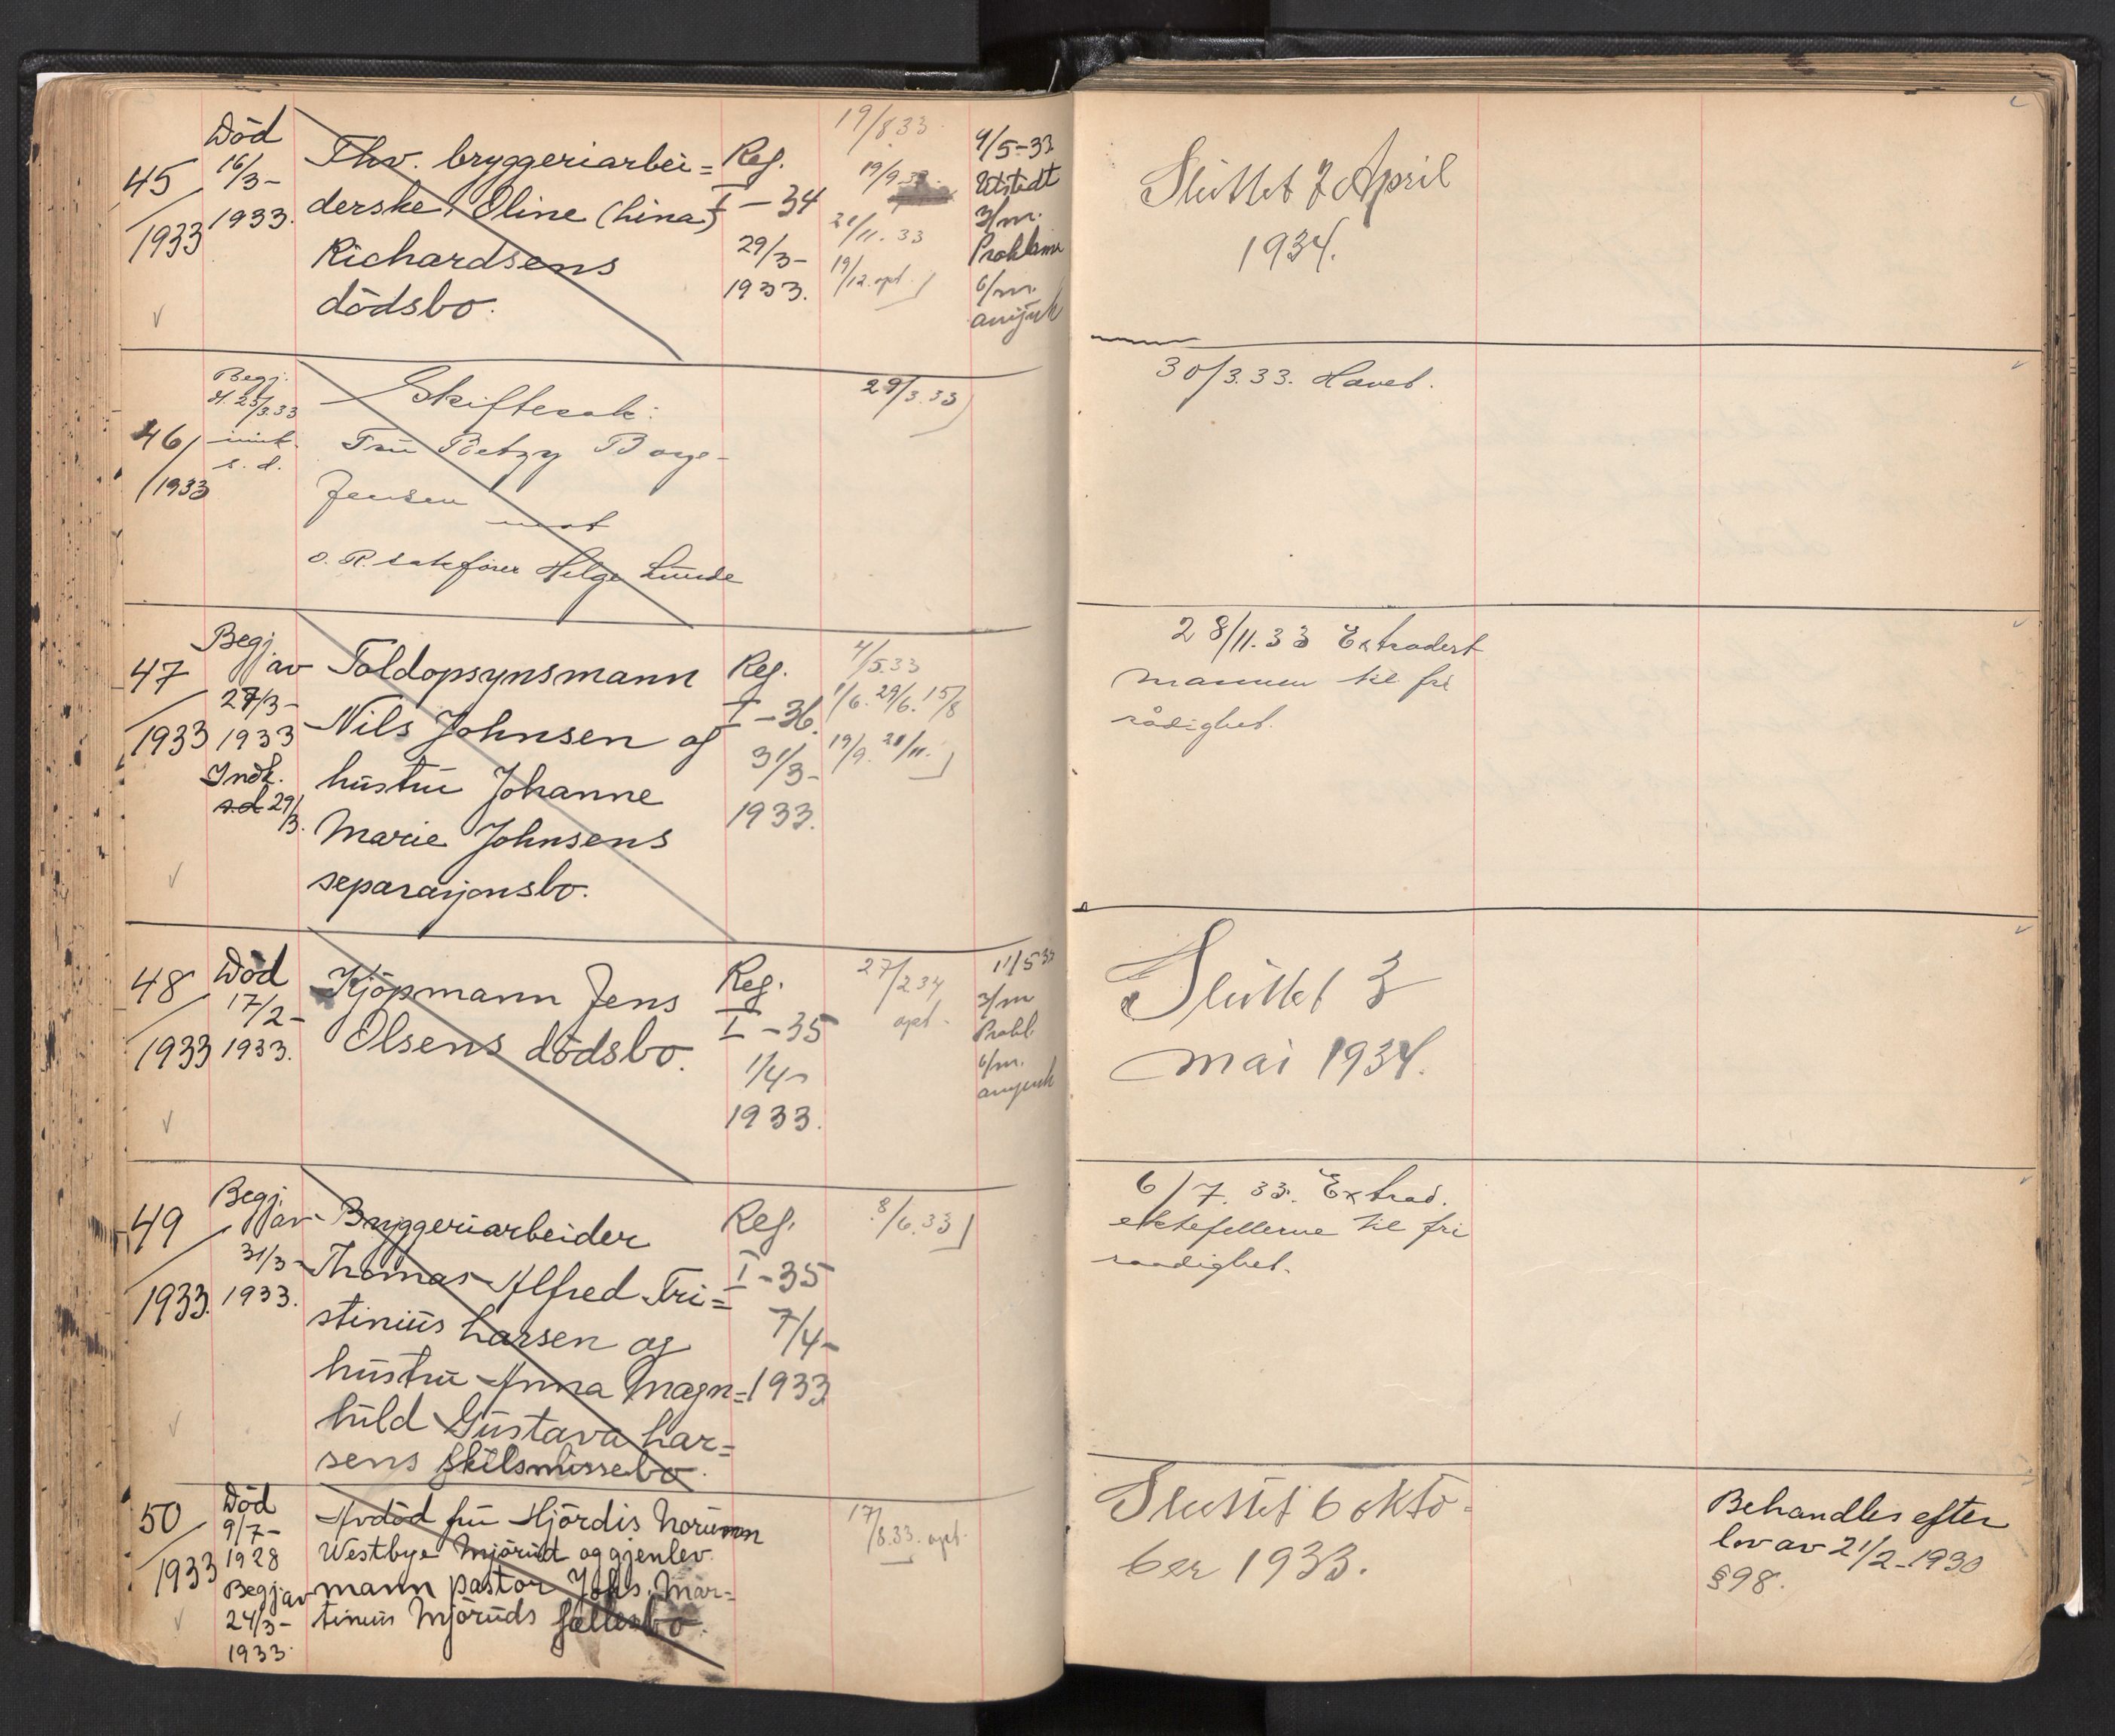 45
1933
Död
16/3-
1933.
Fhv. bryggeriarbei=
derske, Eline (Lina)
Richardsens
dödsbo.
Reg.
I-34
29/3-
1933.
19/8 33
19/9 33.
21/11. 33
19/12. opt.
9/5-33
Utstedt
3/m.
Proklama
6/m.
Sluttet 7 April
1934.
46
1933
Begj.
29/3.33
s. d.
Skiftesak:
Fru Betzy Borge-
Jensen
mot
O. R. sakfører Helge Lunde
29/3.33
30/3.33. Hævet.
47
1933
Begj. av
27/3-
1933
Indk.
s.d 29/3.
Toldopsynsmann
Nils Johnsen og
hustru Johanne
Marie Johnsens
separasjonsbo.
Reg.
I-36.
31/3-
1933.
4/5.33
1/6. 29/6. 15/8
19/9. 28/11.
28/11.33 Extradert
mannen til fri
rådighet.
48
1933
Död
17/2-
1933.
Kjöpmann Jens
Olsens dödsbo.
Reg.
I-35
1/4-
1933.
27/2 34
opt.
11/5 33
3/m
Prokl.
6/m.
Sluttet 3
mai 1934.
49
1933.
Begj. av
31/3-
1933.
Bryggeriarbeider
Thomas Alfred Tri=
stinius Larsen og
hustru Anna Magn=
hild Gustava Lar=
sens skilsmissebo.
Reg.
I-35
7/4-
1933
8/6.33
6/7. 33. Extrad.
ektefellerne til fri
raadighet.
50
1933
Död
9/7-
1928
Begj av
24/3-
1933.
Avdöd fru Hjördis Norunn
Westbye Mjörud og gjenlev.
mann pastor Johs. Mar=
tinius Mjöruds fællesbo.
17/8.33. opt.
Sluttet 6 okto-
ber 1933.
Behandles efter
lov av 21/2-1930
§98.